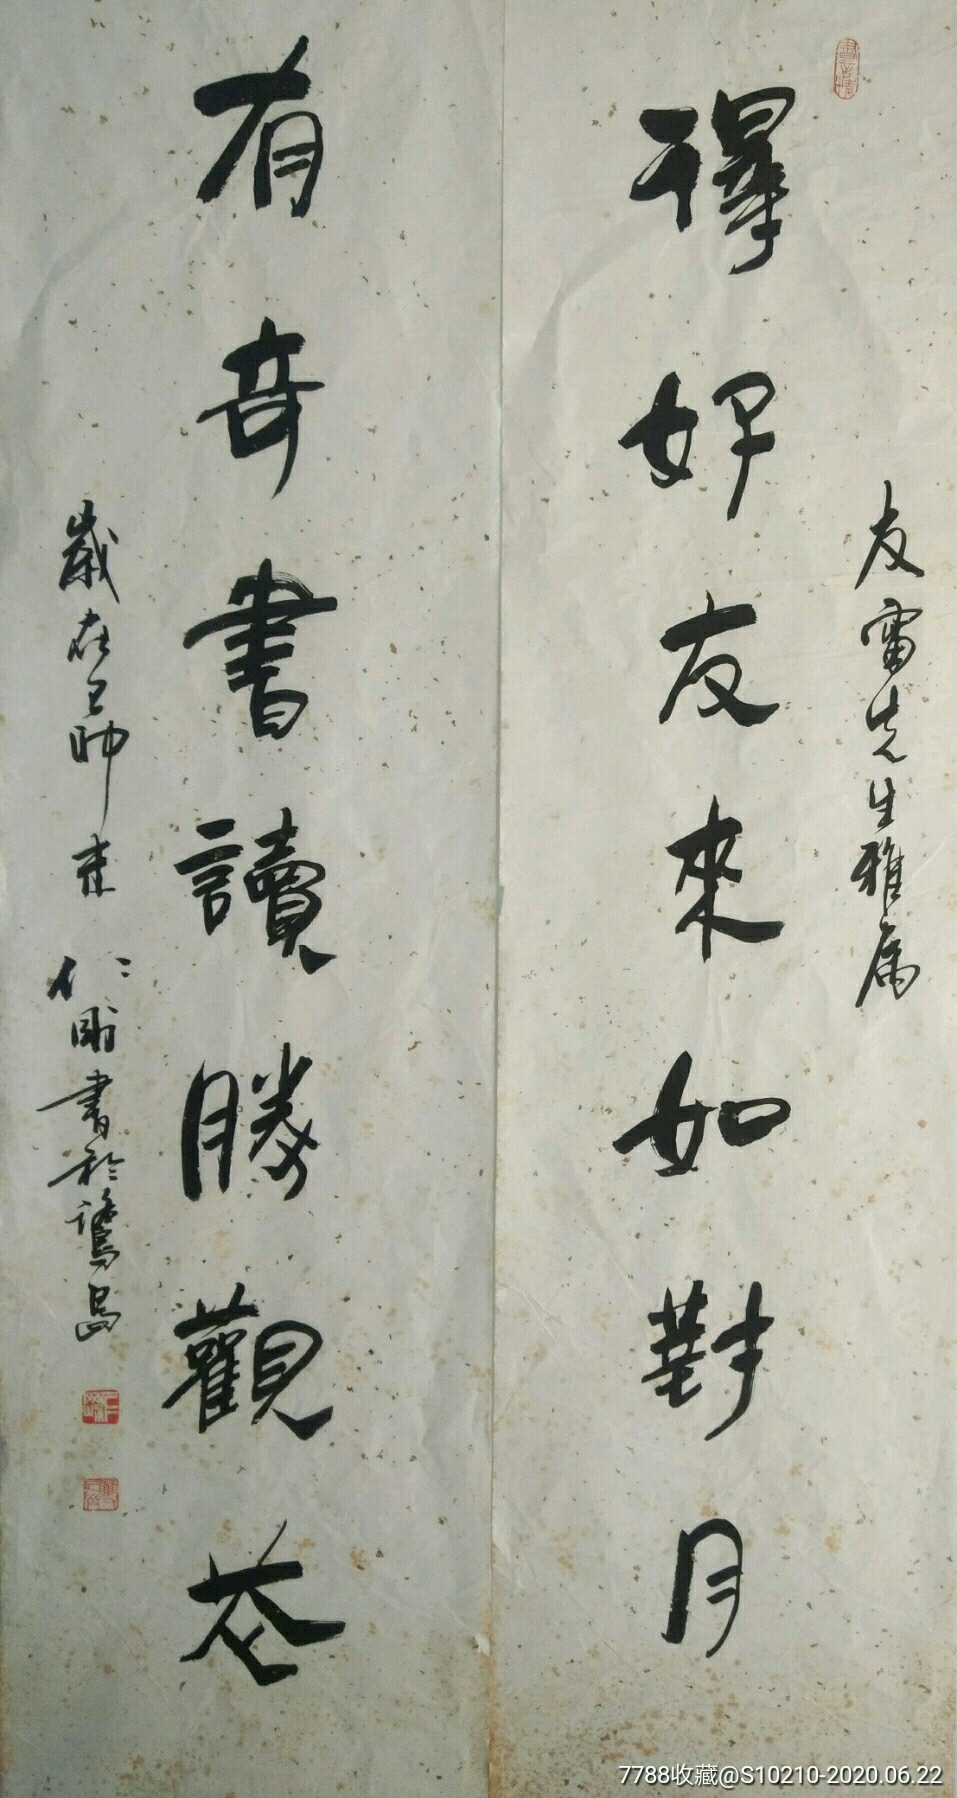 友雷先生雅属
得好友來如對月
有奇書讀勝觀花
歲在己卯末
仁剛書於鷺島
7788收藏@S10210-2020.06.22